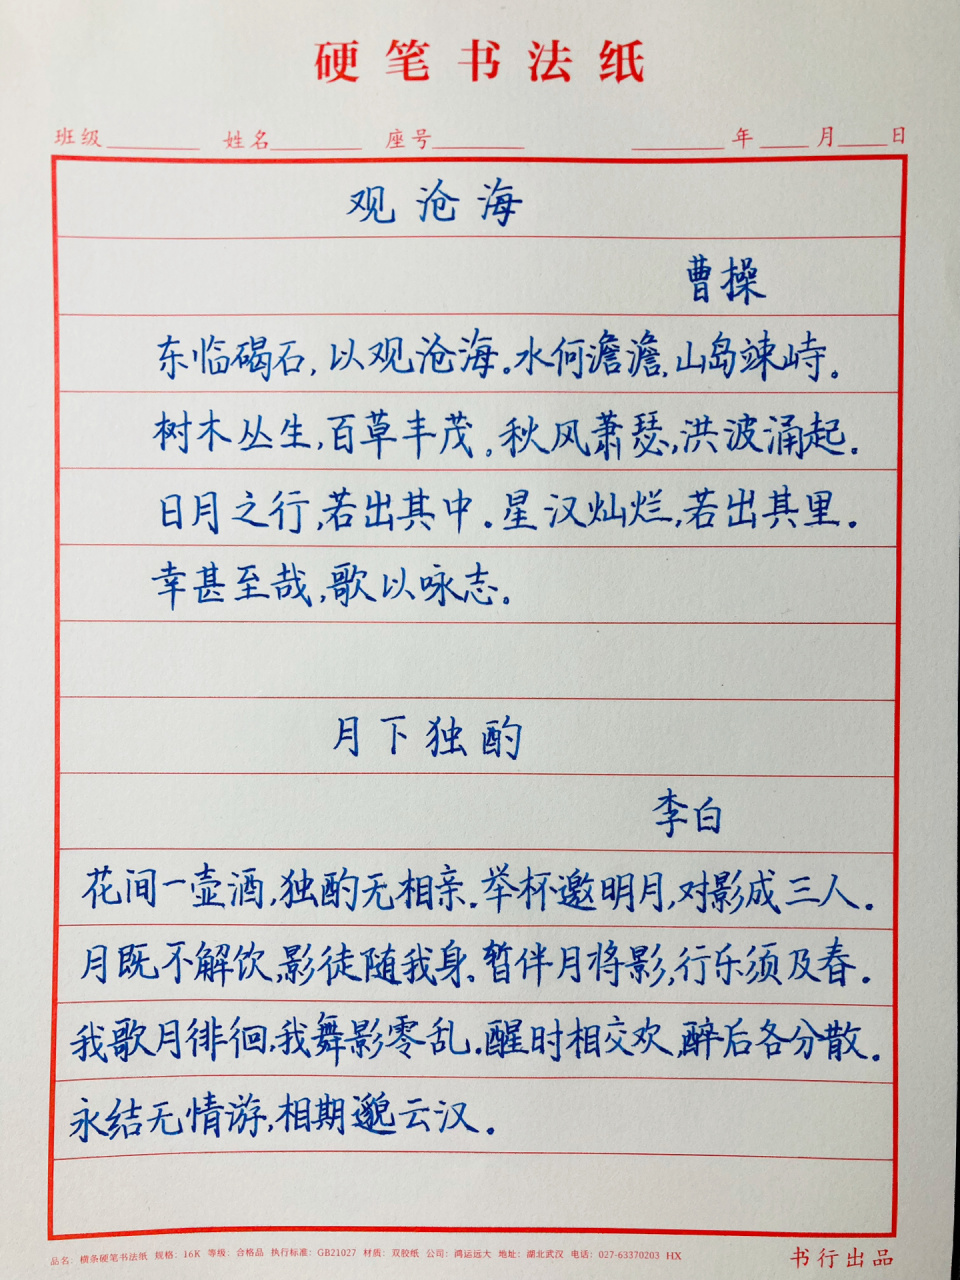 硬笔书法纸
班级________ 姓名________ 座号________ ________年____月____日
观沧海
曹操
东临碣石,以观沧海。水何澹澹,山岛竦峙。
树木丛生,百草丰茂。秋风萧瑟,洪波涌起。
日月之行,若出其中。星汉灿烂,若出其里。
幸甚至哉,歌以咏志。
月下独酌
李白
花间一壶酒,独酌无相亲。举杯邀明月,对影成三人。
月既不解饮,影徒随我身。暂伴月将影,行乐须及春。
我歌月徘徊,我舞影零乱。醒时相交欢,醉后各分散。
永结无情游,相期邈云汉。
品名:横条硬笔书法纸 规格:16K 等级:合格品 执行标准:GB21027 材质:双胶纸 公司:鸿运远大 地址:湖北武汉 电话:027-63370203 HX
书行出品